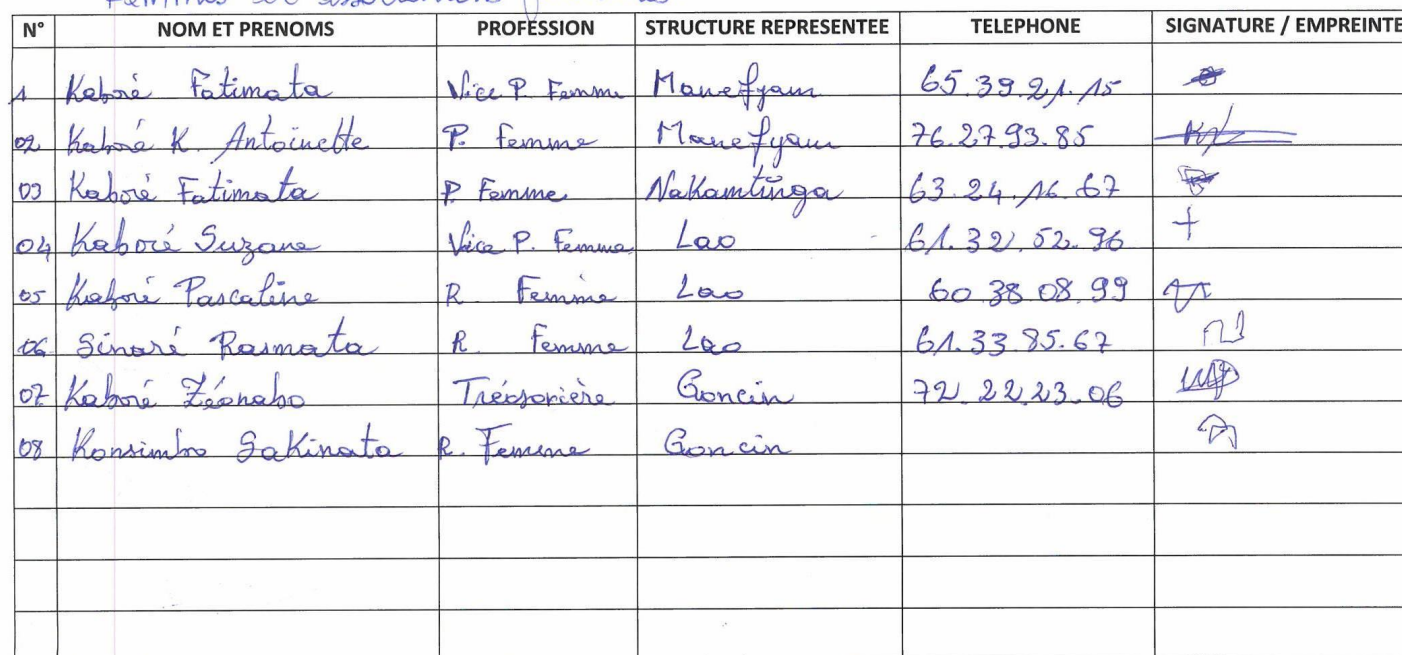 N° NOM ET PRENOMS PROFESSION STRUCTURE REPRESENTEE TELEPHONE SIGNATURE / EMPREINTE
1 Kaboré Fatimata Vice P. Femme Manefyam 65.39.21.15
02 Kaboré K. Antoinette P. Femme Manefyam 76.27.93.85
03 Kaboré Fatimata P Femme Nakamtinga 63.24.16.67
04 Kaboré Suzane Vice P. Femme Lao 61.32.52.96 +
05 Kaboré Pascaline R Femme Lao 60 38 08.99
06 Sinaré Rasmata R. Femme Lao 61.33.85.67
07 Kaboré Zéonabo Trésorière Goncin 72.22.23.06
08 Konsimbo Sakinata R. Femme Goncin